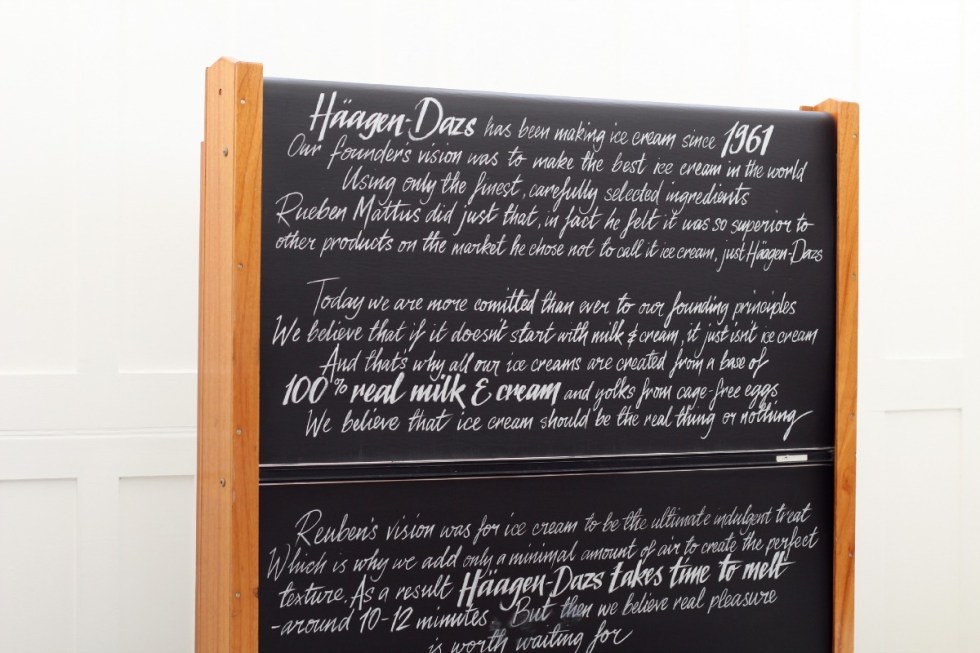 Häagen-Dazs has been making ice cream since 1961
Our founder's vision was to make the best ice cream in the world
Using only the finest, carefully selected ingredients
Rueben Mattus did just that, in fact he felt it was so superior to
other products on the market he chose not to call it ice cream, just Häagen-Dazs
Today we are more comitted than ever to our founding principles
We believe that if it doesn't start with milk & cream, it just isn't ice cream
And that's why all our ice creams are created from a base of
100% real milk & cream and yolks from cage-free eggs
We believe that ice cream should be the real thing or nothing
Reuben's vision was for ice cream to be the ultimate indulgent treat
Which is why we add only a minimal amount of air to create the perfect
texture. As a result Häagen-Dazs takes time to melt
-around 10-12 minutes. But then we believe real pleasure
is worth waiting for